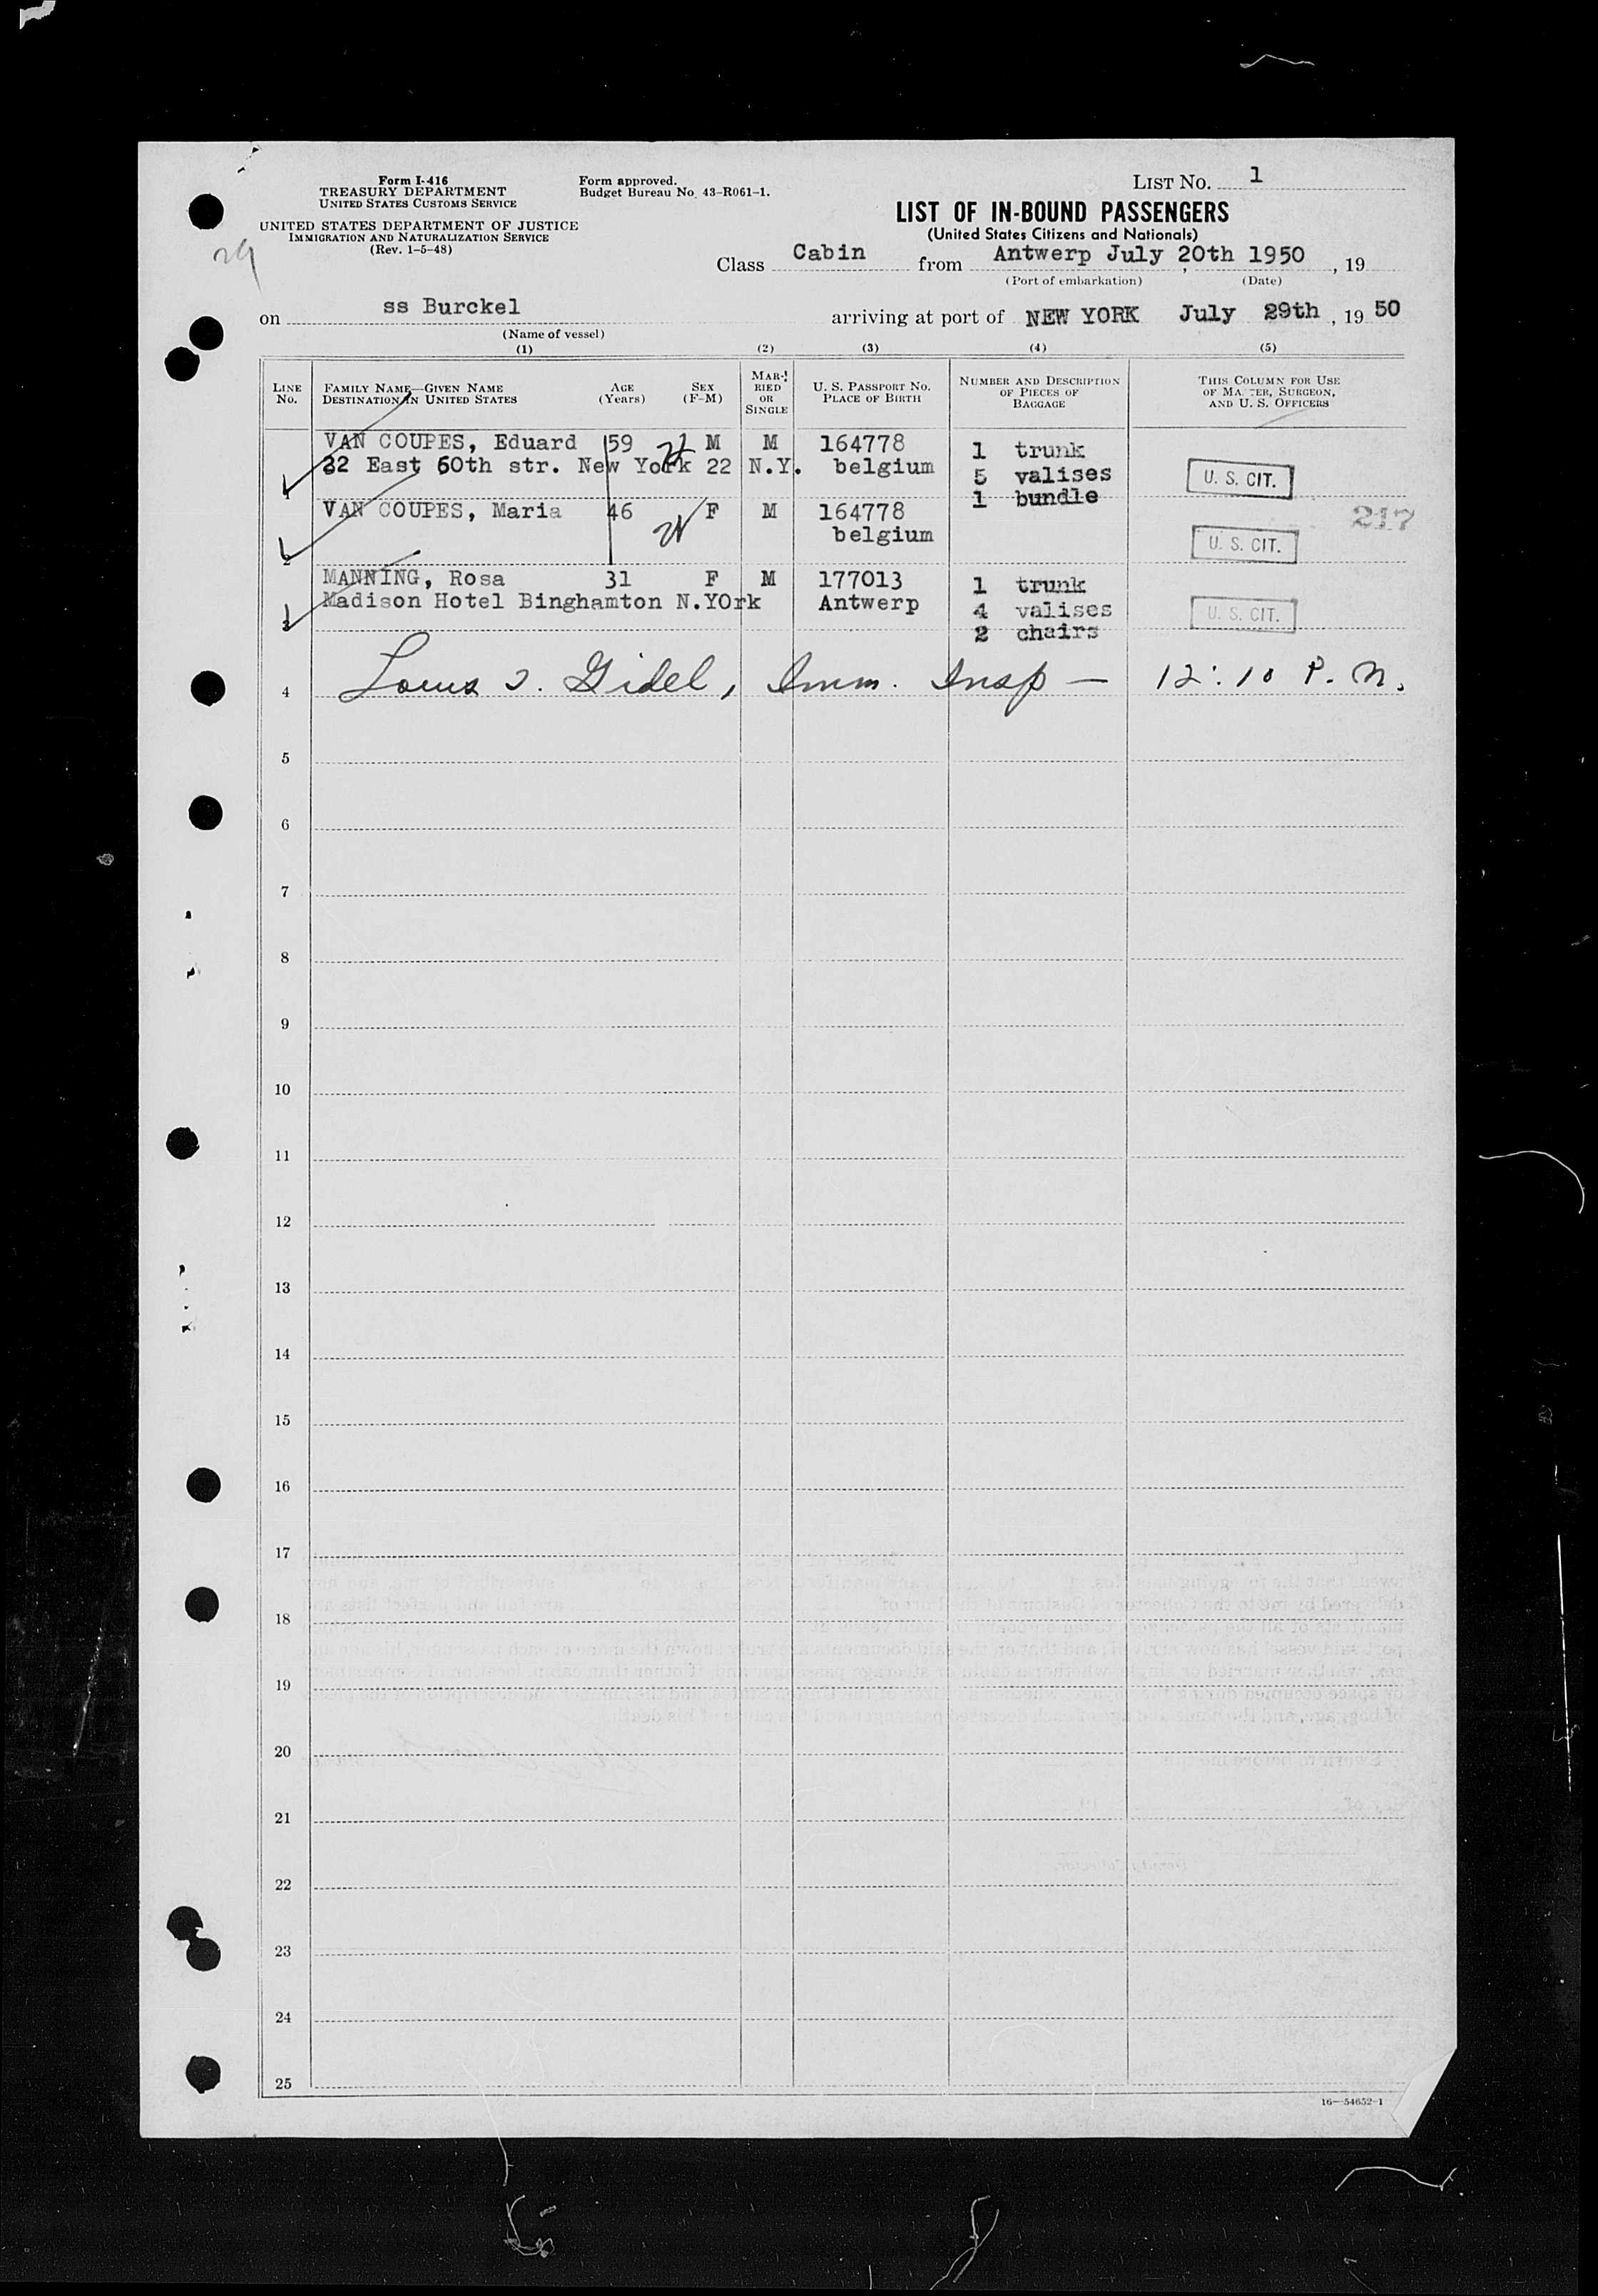 Form I-416
TREASURY DEPARTMENT
UNITED STATES CUSTOMS SERVICE
UNITED STATES DEPARTMENT OF JUSTICE
IMMIGRATION AND NATURALIZATION SERVICE
(Rev. 1-5-48)
Form approved.
Budget Bureau No. 43-R061-1.
LIST NO. 1
LIST OF IN-BOUND PASSENGERS
(United States Citizens and Nationals)
Class Cabin from Antwerp July 20th 1950, 19
(Port of embarkation) (Date)
on ss Burckel arriving at port of NEW YORK July 29th, 19 50
(Name of vessel)
(1) (2) (3) (4) (5)
LINE NO.
FAMILY NAME—GIVEN NAME
DESTINATION IN UNITED STATES
AGE (Years)
SEX (F-M)
MARRIED OR SINGLE
U. S. PASSPORT NO.
PLACE OF BIRTH
NUMBER AND DESCRIPTION OF PIECES OF BAGGAGE
THIS COLUMN FOR USE OF MASTER, SURGEON, AND U. S. OFFICERS
VAN COUPES, Eduard 59 M M 164778 1 trunk
32 East 60th str. New York 22 N.Y. belgium 5 valises U. S. CIT.
1 bundle
VAN COUPES, Maria 46 F M 164778 217
2 belgium U. S. CIT.
MANNING, Rosa 31 F M 177013 1 trunk
Madison Hotel Binghamton N.YOrk Antwerp 4 valises U. S. CIT.
2 chairs
4 Louis J. Gidel, Imm. Insp — 12:10 P. M.
5
6
7
8
9
10
11
12
13
14
15
16
17
18
19
20
21
22
23
24
25
16—54652-1